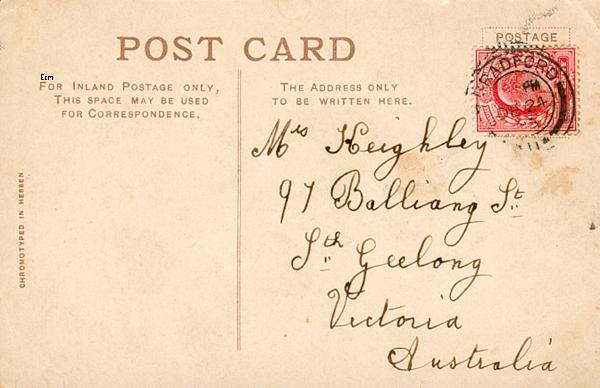 POST CARD
POSTAGE
Ecm
FOR INLAND POSTAGE ONLY,
THIS SPACE MAY BE USED
FOR CORRESPONDENCE.
THE ADDRESS ONLY
TO BE WRITTEN HERE.
BRADFORD
PM
24
Mrs Keighley
97 Balliang St
Sth Geelong
Victoria
Australia
CHROMOTYPED IN HESSEN